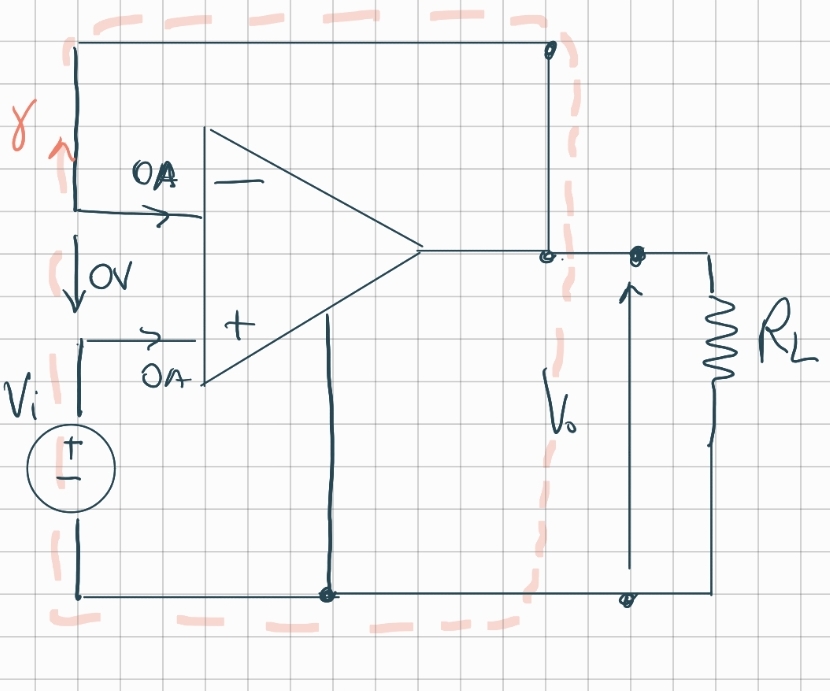 γ
0A
−
0V
+
0A
Vi
+
−
Vo
RL